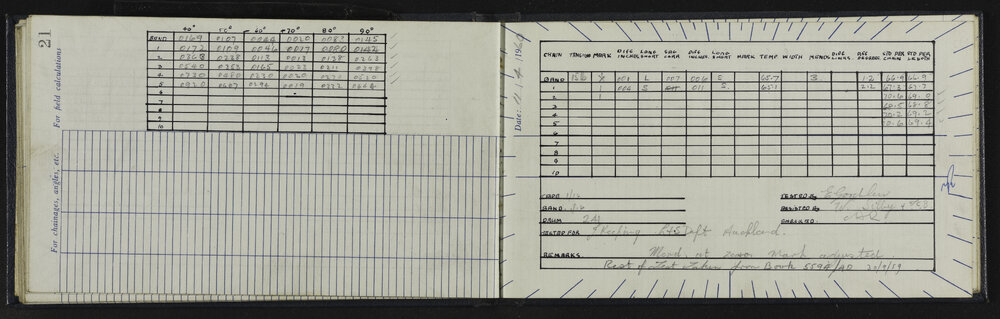 21
For field calculations
For chainages, angles, etc.
40° 50° 60° 70° 80° 90°
BAND 0169 0107 0044 0020 0083 0145
1 0172 0109 0046 0017 0080 0142
2 0368 0238 0113 0013 0138 0263
3 0540 0353 0165 0023 0211 0398
4 0730 0480 0230 0020 0270 0520
5 0920 0607 0294 0019 0332 0644
6
7
8
9
10
Date:
CHAIN TENSION MARK DIFF INCHES LONG SHORT SAG CORR DIFF INCHES LONG SHORT MARK TEMP WIDTH MENDS DIFF LINKS DEC DEGREES STD PER CHAIN STD PER LENGTH
BAND 15lb 001 L 007 006 S 65.7 3 1.2 66.9 66.9
1 1 004 S 011 S 65.1 2.2 67.3 67.7
2 1 70.6 69.0
3 68.8
4 70.2 69.2
5 70.6 69.4
6
7
8
9
10
CARD 1/12
BAND 1/12
DRUM 2A1
TESTED FOR J Keeping L & S Dept Auckland.
TESTED By
ASSISTED By W.
CHECKED
REMARKS. Mend at zero mark adjusted
Rest of Test Taken from Book 559A/40 20/9/59